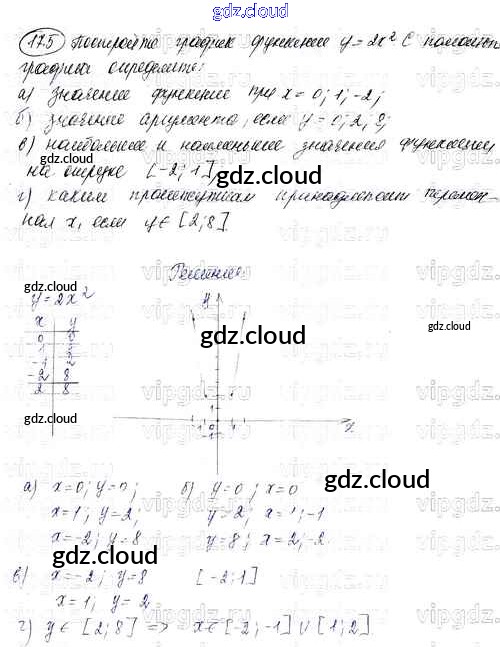 gdz.cloud
17.5 Постройте график функции y = 2x² С помощью
графика определите:
а) значение функции при x = 0; 1; -2;
б) значение аргумента, если y = 0; 2; 8;
в) наибольшее и наименьшее значения функции
на отрезке [-2; 1]
г) каким промежуткам принадлежит перемен-
ная x, если y ∈ [2; 8].
Решение
gdz.cloud
y = 2x²
x y
0 0
1 2
-1 2
-2 8
2 8
gdz.cloud
gdz.cloud
gdz.cloud
gdz.cloud
а) x=0; y=0; б) y=0; x=0
x=1; y=2; y=2; x=1; -1
x=-2; y=8 y=8; x=2; -2
gdz.cloud
gdz.cloud
в) x=-2; y=8 [-2; 1]
x=1; y=2
г) y ∈ [2; 8] => x ∈ [-2; -1] ∪ [1; 2].